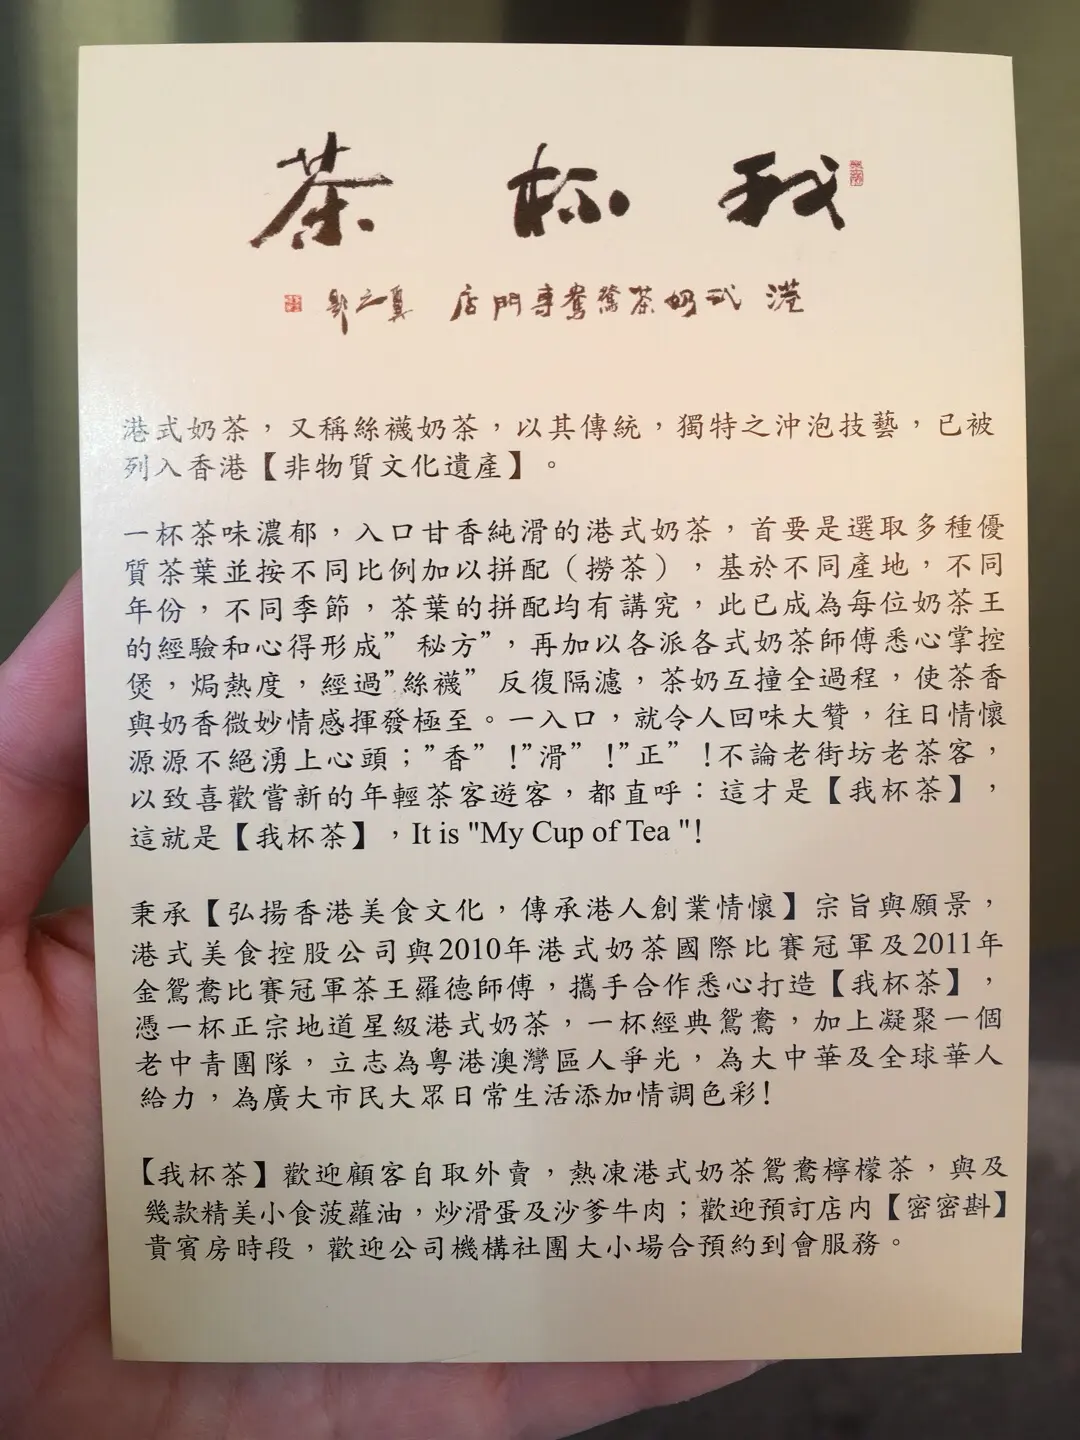 我杯茶
港式奶茶鴛鴦專門店
港式奶茶，又稱絲襪奶茶，以其傳統，獨特之沖泡技藝，已被
列入香港【非物質文化遺產】。
一杯茶味濃郁，入口甘香純滑的港式奶茶，首要是選取多種優
質茶葉並按不同比例加以拼配（撈茶），基於不同產地，不同
年份，不同季節，茶葉的拼配均有講究，此已成為每位奶茶王
的經驗和心得形成”秘方”，再加以各派各式奶茶師傅悉心掌控
煲，焗熱度，經過”絲襪”反復隔濾，茶奶互撞全過程，使茶香
與奶香微妙情感揮發極至。一入口，就令人回味大贊，往日情懷
源源不絕湧上心頭；”香”!”滑”!”正”!不論老街坊老茶客，
以致喜歡嘗新的年輕茶客遊客，都直呼：這才是【我杯茶】，
這就是【我杯茶】，It is "My Cup of Tea "!
秉承【弘揚香港美食文化，傳承港人創業情懷】宗旨與願景，
港式美食控股公司與2010年港式奶茶國際比賽冠軍及2011年
金鴛鴦比賽冠軍茶王羅德師傅，攜手合作悉心打造【我杯茶】，
憑一杯正宗地道星級港式奶茶，一杯經典鴛鴦，加上凝聚一個
老中青團隊，立志為粵港澳灣區人爭光，為大中華及全球華人
給力，為廣大市民大眾日常生活添加情調色彩!
【我杯茶】歡迎顧客自取外賣，熱凍港式奶茶鴛鴦檸檬茶，與及
幾款精美小食菠蘿油，炒滑蛋及沙爹牛肉；歡迎預訂店內【密密斟】
貴賓房時段，歡迎公司機構社團大小場合預約到會服務。